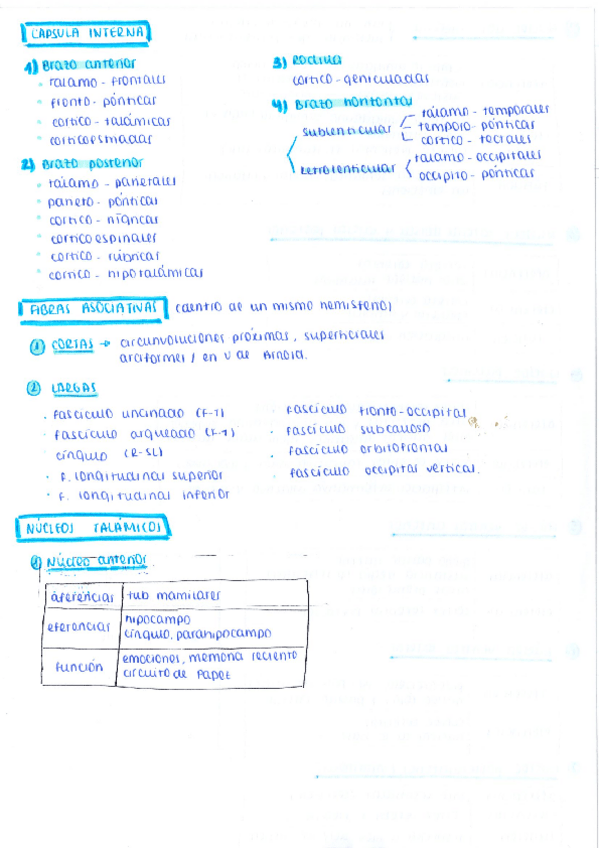 CÁPSULA INTERNA
1) Brazo anterior
• tálamo - frontales
• fronto - pónticas
• cortico - talámicas
• corticoestriadas
2) Brazo posterior
• tálamo - parietales
• parieto - pónticas
• cortico - nígricas
• corticoespinales
• cortico - rúbricas
• cortico - hipotalámicas
3) Rodilla
cortico - geniculadas
4) Brazo horizontal
sublenticular
tálamo - temporales
temporo - pónticas
cortico - tectales
retrolenticular
tálamo - occipitales
occipito - pónticas
FIBRAS ASOCIATIVAS (dentro de un mismo hemisferio)
① CORTAS → circunvoluciones próximas, superficiales
arciformes / en U de Arnold.
② LARGAS
• Fascículo uncinado (F-T)
• Fascículo arqueado (F-T)
• Cíngulo (R-SL)
• F. longitudinal superior
• F. longitudinal inferior
• Fascículo fronto-occipital
• Fascículo subcalloso
• Fascículo orbitofrontal
• Fascículo occipital vertical.
NÚCLEOS TALÁMICOS
① Núcleo anterior
aferencias tub mamilares
eferencias hipocampo
cíngulo, parahipocampo
función emociones, memoria reciente
circuito de Papez